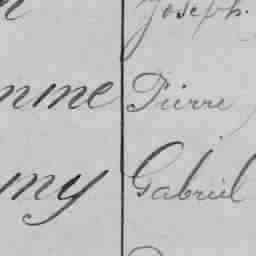 Joseph.
mme Pierre
my Gabriel